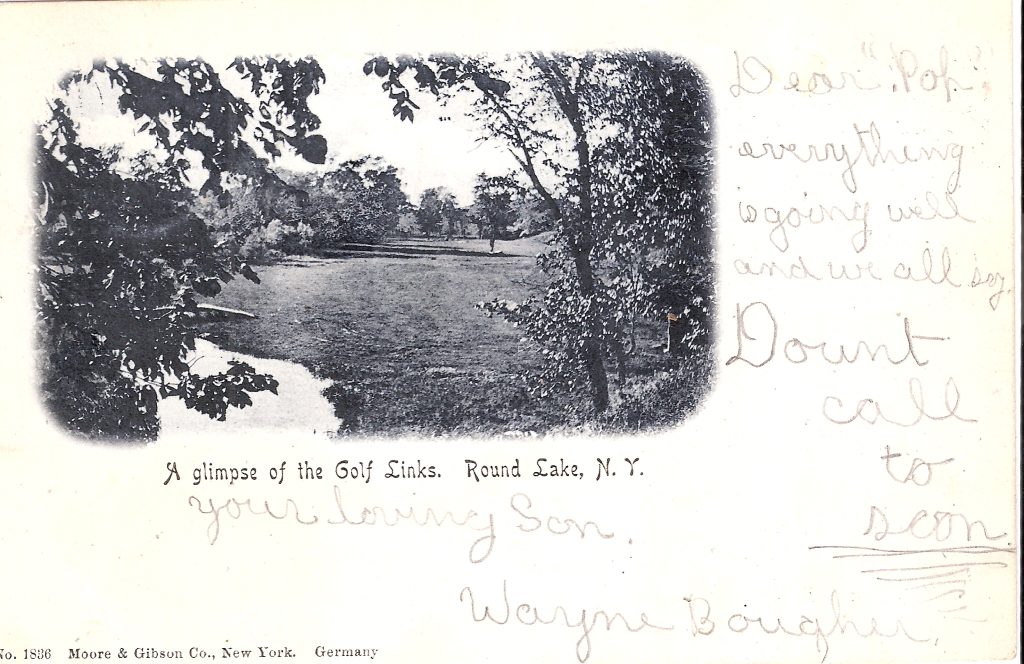 Dear "Pop"
everything
is going well
and we all say
Dount
call
to
soon.
A glimpse of the Golf Links. Round Lake, N. Y.
your loving Son.
Wayne Bougher.
No. 1836 Moore & Gibson Co., New York. Germany